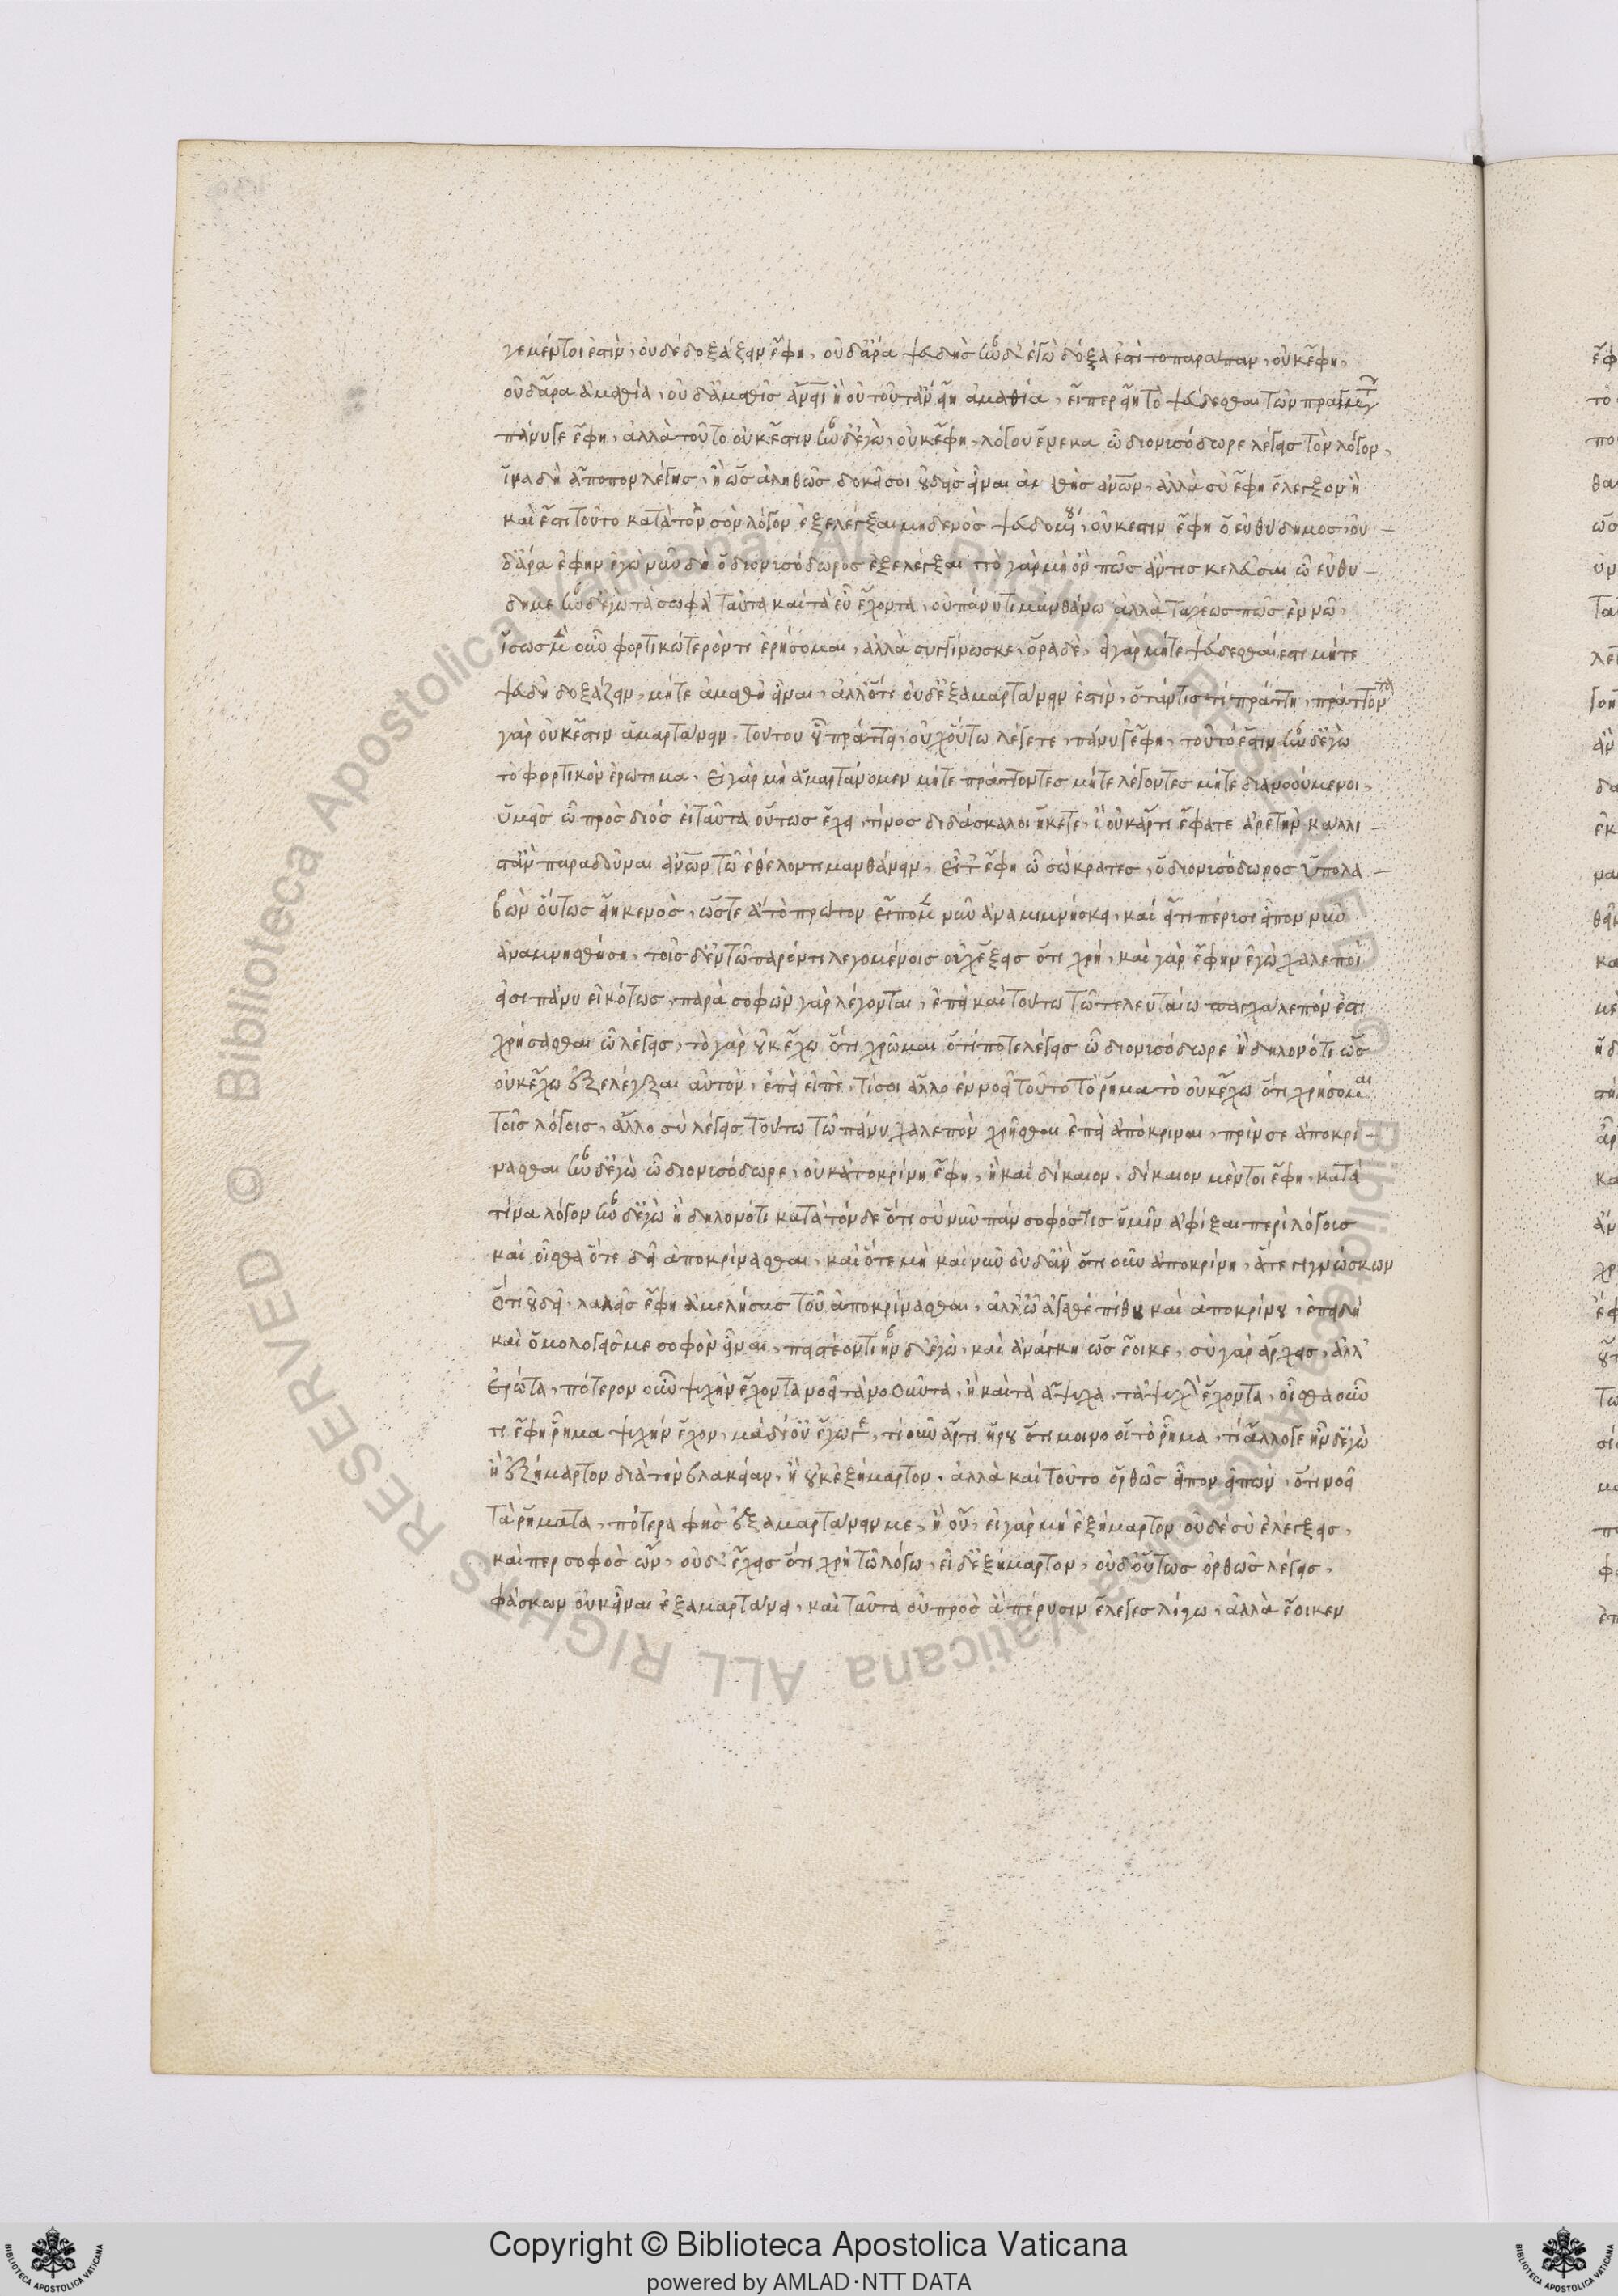 γε μέντοι ἐστίν, οὐδὲ δοξάζειν ἔφη, οὐδ' ἄρα ψευδὴς ἦν δ' ἐγὼ δόξα ἐστὶ τὸ παράπαν, οὐκ ἔφη,
οὐδ' ἄρα ἀμαθία, οὐδ' ἀμαθεῖς ἄνθρωποι ἢ οὐ τοῦτ' ἂν εἴη ἀμαθία, εἴπερ εἴη τὸ ψεύδεσθαι τῶν πραγμάτων
πάνυ γε ἔφη, ἀλλὰ τοῦτο οὐκ ἔστιν ἦν δ' ἐγὼ, οὐκ ἔφη, λόγου ἕνεκα ὦ διονυσόδωρε λέγεις τὸν λόγον,
ἵνα δὴ ἄποπον λέγης, ἢ ὡς ἀληθῶς δοκεῖ σοι οὐδεὶς εἶναι ἀμαθὴς ἀνθρώπων, ἀλλὰ σὺ ἔφη ἔλεγξον ἢ
καὶ ἔστι τοῦτο κατὰ τὸν σὸν λόγον ἐξελέγξαι μηδενὸς ψευδομένου, οὐκ ἔστιν ἔφη ὁ εὐθύδημος, οὐ-
δ' ἄρα ἔφην ἐγὼ νῦν δὴ ὁ διονυσόδωρος ἐξελέγξαι, τὸ γὰρ μὴ ὂν πῶς ἄν τις κελεύσαι ὦ εὐθύ-
δημε ἦν δ' ἐγὼ τὰ σοφὰ ταῦτα καὶ τὰ εὖ ἔχοντα, οὐ πάνυ τι μανθάνω ἀλλὰ παχέως πως ἐννοῶ,
ἴσως μὲν οὖν φορτικώτερόν τι ἐρήσομαι, ἀλλὰ συγγίνωσκε, ὅρα δὲ, εἰ γὰρ μήτε ψεύδεσθαί ἐστι μήτε
ψευδῆ δοξάζειν, μήτε ἀμαθῆ εἶναι, ἄλλο τι οὐδ' ἐξαμαρτάνειν ἐστὶν, ὅταν τίς τι πράττη, πράττοντα
γὰρ οὐκ ἔστιν ἁμαρτάνειν τούτου οὗ πράττει, οὐχ οὕτω λέγετε, πάνυ γ' ἔφη, τοῦτό ἐστιν ἦν δ' ἐγὼ
τὸ φορτικὸν ἐρώτημα. εἰ γὰρ μὴ ἁμαρτάνομεν μήτε πράττοντες μήτε λέγοντες μήτε διανοούμενοι,
ὑμεῖς ὦ πρὸς διός εἰ ταῦτα οὕτως ἔχει, τίνος διδάσκαλοι ἥκετε, ἢ οὐκ ἄρτι ἔφατε ἀρετὴν κάλλι-
στ' ἂν παραδοῦναι ἀνθρώπων τῶ ἐθέλοντι μανθάνειν, εἶτ' ἔφη ὦ σώκρατες, ὁ διονυσόδωρος ὑπολα-
βὼν οὕτως εἶ κρόνος, ὥστε ἃ τὸ πρῶτον εἴπομεν νῦν ἀναμιμνήσκει, καὶ εἴ τι πέρυσι εἶπον νῦν
ἀναμνησθήση, τοῖς δ' ἐν τῶ παρόντι λεγομένοις οὐχ ἕξεις ὅτι χρῆ, καὶ γὰρ ἔφην ἐγὼ χαλεποί
εἰσι πάνυ εἰκότως, παρὰ σοφῶν γὰρ λέγονται, ἐπεὶ καὶ τούτω τῶ τελευταίω παγχάλεπόν ἐστι
χρήσασθαι ὦ λέγεις, τὸ γὰρ οὐκ ἔχω ὅτι χρῶμαι ὅτι ποτε λέγεις ὦ διονυσόδωρε ἢ δηλονότι ὡς
οὐκ ἔχω ἐξελέγξαι αὐτόν, ἐπεὶ εἰπὲ, τί σοι ἄλλο ἐννοεῖ τοῦτο τὸ ῥῆμα τὸ οὐκ ἔχω ὅτι χρήσομαι
τοῖς λόγοις, ἄλλο σὺ λέγεις τούτω τῶ πάνυ χαλεπὸν χρῆσθαι ἐπεὶ ἀπόκριναι, πρίν σε ἀποκρί-
νασθαι ἦν δ' ἐγὼ ὦ διονυσόδωρε, οὐκ ἀποκρίνη ἔφη, ἦ καὶ δίκαιον, δίκαιον μέντοι ἔφη, κατὰ
τίνα λόγον ἦν δ' ἐγὼ ἢ δηλονότι κατὰ τόνδε ὅτι σὺ νῦν πάνσοφός τις ἡμῖν ἀφίξαι περὶ λόγοις
καὶ οἶσθα ὅτε δεῖ ἀποκρίνασθαι, καὶ ὅτε μὴ καὶ νῦν οὐδ' ἂν ὅτι οὖν ἀποκρίνη, ἅτε γιγνώσκων
ὅτι οὐ δεῖ, λαλεῖς ἔφη ἀμελήσας τοῦ ἀποκρίνασθαι, ἀλλ' ὦ 'γαθὲ πείθου καὶ ἀποκρίνου, ἐπειδὴ
καὶ ὁμολογεῖς με σοφὸν εἶναι, πειστέον τι ἦν δ' ἐγὼ, καὶ ἀνάγκη ὡς ἔοικε, σὺ γὰρ ἄρχεις, ἀλλ'
ἐρώτα, πότερον οὖν ψυχὴν ἔχοντα νοεῖ τὰ νοοῦντα, ἢ καὶ τὰ ἄψυχα, τὰ ψυχὴν ἔχοντα, οἶσθα οὖν
τι ἔφη ῥῆμα ψυχὴν ἔχον, μὰ δί' οὐκ ἔγωγε, τί οὖν ἄρτι ἤρου ὅτι μοι νοοῖ τὸ ῥῆμα, τί ἄλλο γε ἦν δ' ἐγὼ
ἢ ἐξήμαρτον διὰ τὴν βλακείαν, ἢ οὐκ ἐξήμαρτον, ἀλλὰ καὶ τοῦτο ὀρθῶς εἶπον εἰπὼν, ὅτι νοεῖ
τὰ ῥήματα, πότερα φὴς ἐξαμαρτάνειν με, ἢ οὔ, εἰ γὰρ μὴ ἐξήμαρτον οὐδὲ σὺ ἐλέγξεις,
καίπερ σοφὸς ὤν, οὐδ' ἔχεις ὅτι χρῆ τῶ λόγω, εἰ δ' ἐξήμαρτον, οὐδ' οὕτως ὀρθῶς λέγεις,
φάσκων οὐκ εἶναι ἐξαμαρτάνει, καὶ ταῦτα οὐ πρὸς ἃ πέρυσιν ἔλεγες λέγω, ἀλλὰ ἔοικεν
Copyright © Biblioteca Apostolica Vaticana
powered by AMLAD·NTT DATA
© Biblioteca Apostolica Vaticana ALL RIGHTS RESERVED
© Biblioteca Apostolica Vaticana ALL RIGHTS RESERVED